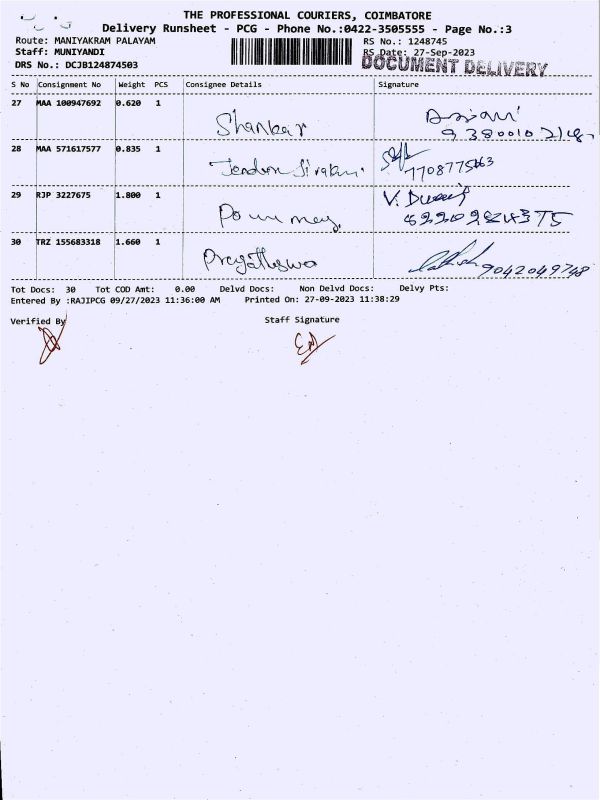 THE PROFESSIONAL COURIERS, COIMBATORE
Delivery Runsheet - PCG - Phone No.:0422-3505555 - Page No.:3
Route: MANIYAKRAM PALAYAM RS No.: 1248745
Staff: MUNIYANDI RS Date: 27-Sep-2023
DRS No.: DCJB124874503 DOCUMENT DELIVERY
S No Consignment No Weight PCS Consignee Details Signature
27 MAA 100947692 0.620 1
Shankar
28 MAA 571617577 0.835 1
29 RJP 3227675 1.800 1
30 TRZ 155683318 1.660 1
9042049748
Tot Docs: 30 Tot COD Amt: 0.00 Delvd Docs: Non Delvd Docs: Delvy Pts:
Entered By :RAJIPCG 09/27/2023 11:36:00 AM Printed On: 27-09-2023 11:38:29
Verified By Staff Signature